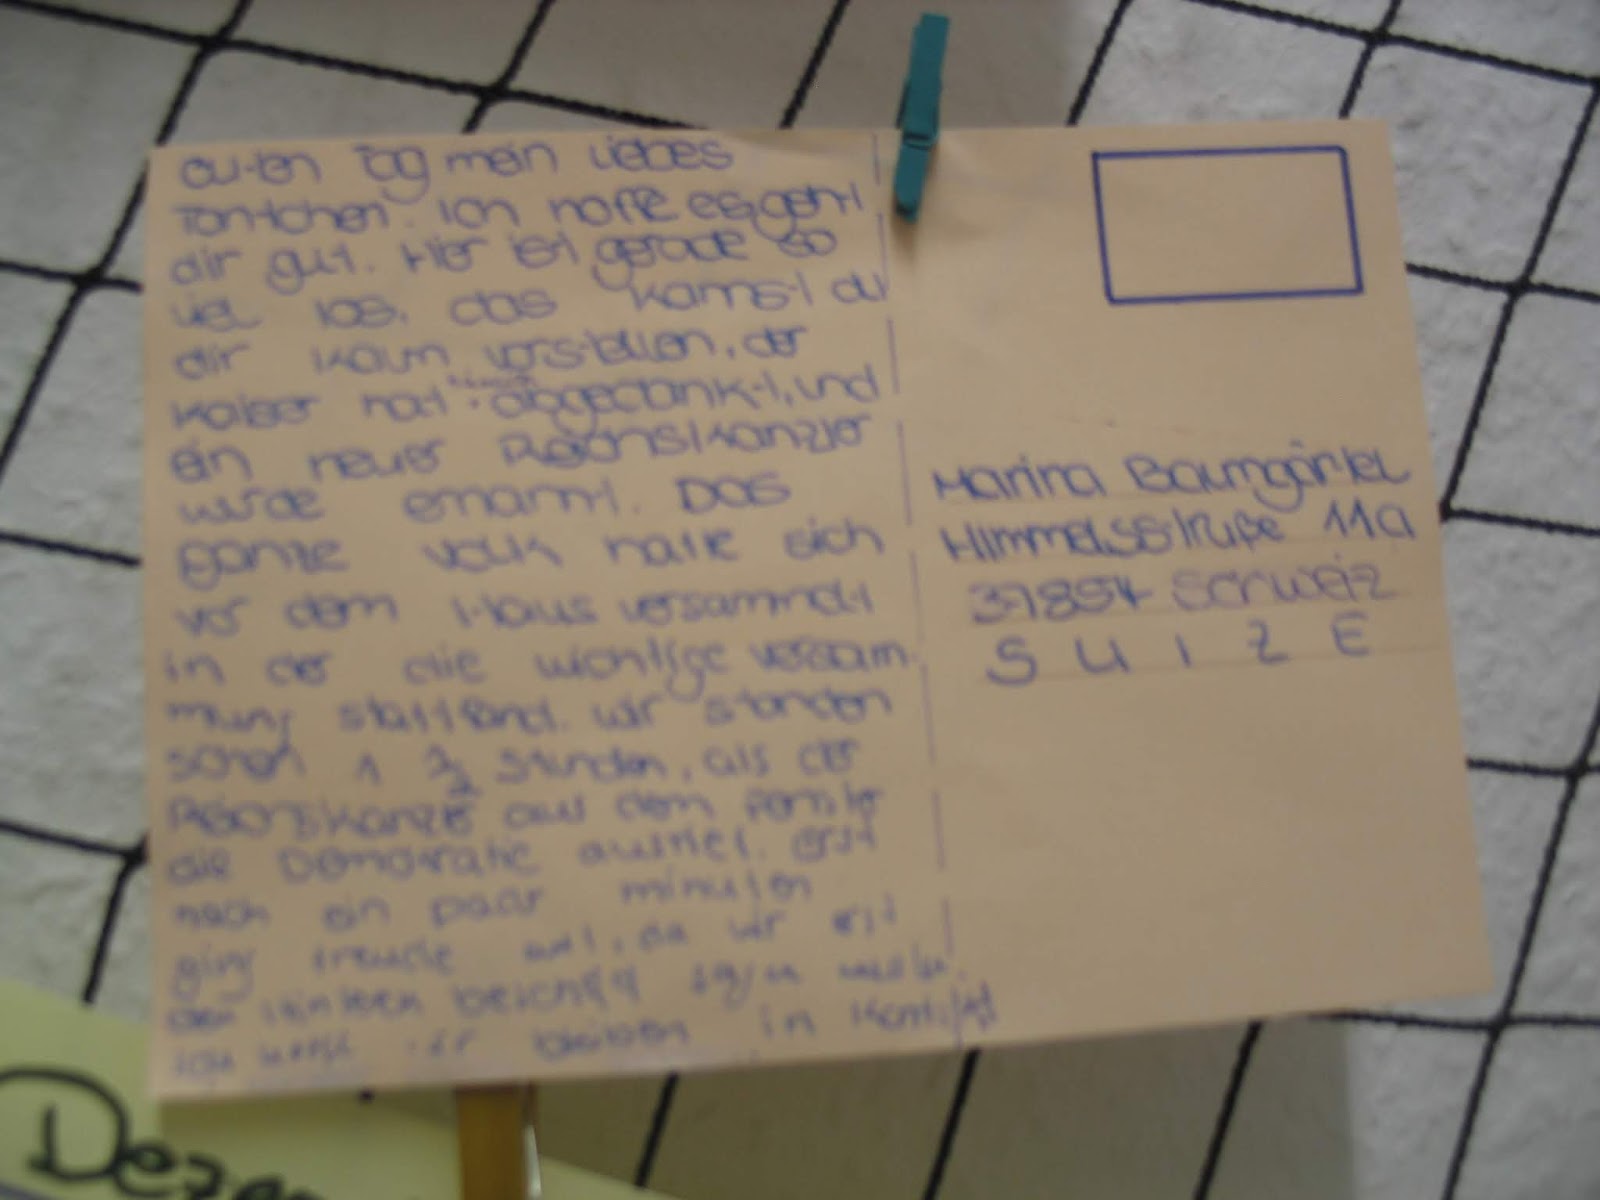 Guten Tag mein Liebes
Tantchen. Ich hoffe es geht
dir gut. Hier ist gerade so
viel los, das kannst du
dir kaum vorstellen, der
Kaiser hat abgedankt, und
ein neuer Reichskanzler
wurde ernannt. Das
ganze Volk hatte sich
vor dem Haus versammelt
in der die wichtige versam-
mlung stattfand. Wir standen
schon 1 1/2 Stunden, als der
Reichskanzler aus dem Fenster
die Demokratie ausrief. Erst
nach ein paar minuten
ging Freude auf, da wir erst
den
ich hoffe wir bleiben in Kontakt
Marina Baumgärtel
Himmelsstraße 11a
37854 Schweiz
S U I Z E
Dezem